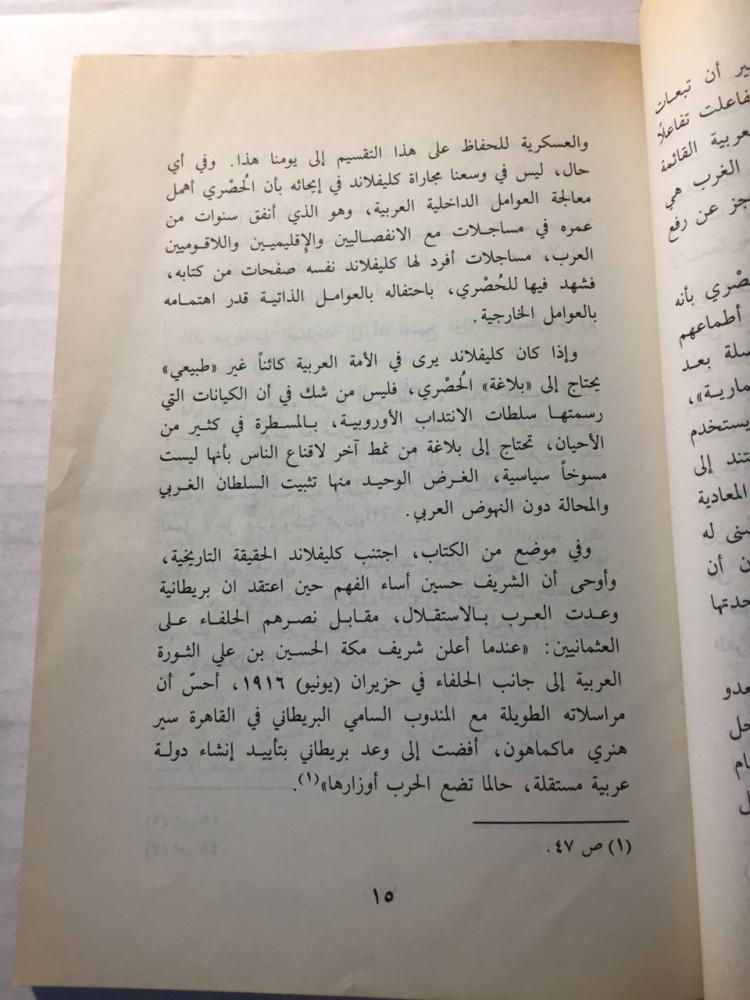 والعسكرية للحفاظ على هذا التقسيم إلى يومنا هذا. وفي أي
حال، ليس في وسعنا مجاراة كليفلاند في إيحائه بأن الحُصْري أهمل
معالجة العوامل الداخلية العربية، وهو الذي أنفق سنوات من
عمره في مساجلات مع الانفصاليين والإقليميين واللاقوميين
العرب، مساجلات أفرد لها كليفلاند نفسه صفحات من كتابه،
فشهد فيها للحُصْري، باحتفاله بالعوامل الذاتية قدر اهتمامه
بالعوامل الخارجية.
وإذا كان كليفلاند يرى في الأمة العربية كائناً غير «طبيعي»
يحتاج إلى «بلاغة» الحُصْري، فليس من شك في أن الكيانات التي
رسمتها سلطات الانتداب الأوروبية، بالمسطرة في كثير من
الأحيان، تحتاج إلى بلاغة من نمط آخر لاقناع الناس بأنها ليست
مسوخاً سياسية، الغرض الوحيد منها تثبيت السلطان الغربي
والمحالة دون النهوض العربي.
وفي موضع من الكتاب، اجتنب كليفلاند الحقيقة التاريخية،
وأوحى أن الشريف حسين أساء الفهم حين اعتقد ان بريطانية
وعدت العرب بالاستقلال، مقابل نصرهم الحلفاء على
العثمانيين: «عندما أعلن شريف مكة الحسين بن علي الثورة
العربية إلى جانب الحلفاء في حزيران (يونيو) ١٩١٦، أحسّ أن
مراسلاته الطويلة مع المندوب السامي البريطاني في القاهرة سير
هنري ماكماهون، أفضت إلى وعد بريطاني بتأييد إنشاء دولة
عربية مستقلة، حالما تضع الحرب أوزارها»(١).
(١) ص ٤٧.
١٥
ير أن تبعات
فاعلت تفاعلًا
عربية القائمة
الغرب هي
جز عن رفع
صْري بأنه
أطماعهم
صلة بعد
مارية»،
يستخدم
تند إلى
المعادية
سنى له
ن أن
حدتها
عدو
حل
ام